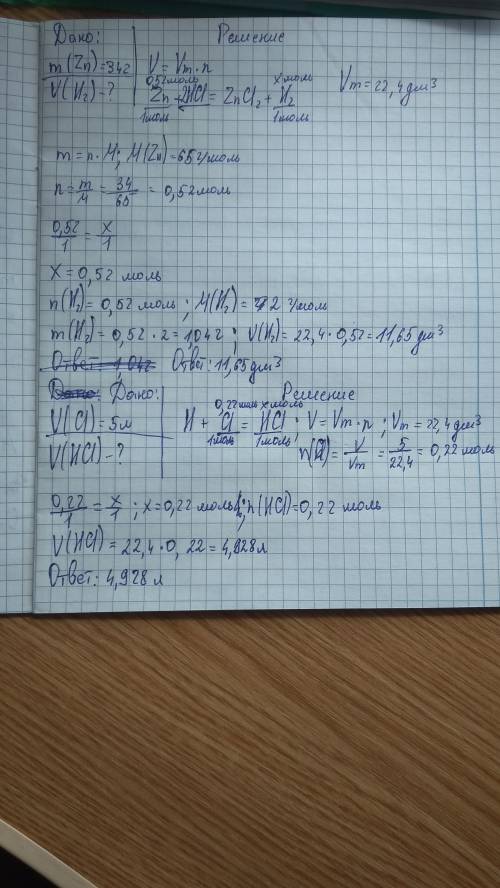 Дано: Решение
m(Zn)=34г V = Vm·n
V(H₂)-? 0,52моль x моль
Zn + 2HCl = ZnCl₂ + H₂ Vm=22,4дм³
1моль 1моль
m=n·M; M(Zn)=65г/моль
n = m/M = 34/65 = 0,52моль
0,52/1 = x/1
x=0,52 моль
n(H₂)= 0,52 моль ; M(H₂)= 2 г/моль
m(H₂)= 0,52·2=1,04г ; V(H₂)= 22,4·0,52=11,65дм³
Ответ: 1,04г Ответ: 11,65дм³
Дано: Дано: Решение
V(Cl)=5л 0,22моль x моль
H + Cl = HCl ; V=Vm·n ; Vm=22,4дм³
1моль 1моль
V(HCl)-? n(Cl)= V/Vm = 5/22,4 = 0,22 моль
0,22/1 = x/1 ; x=0,22 моль ; n(HCl)=0,22 моль
V(HCl)=22,4·0,22=4,928л
Ответ: 4,928 л